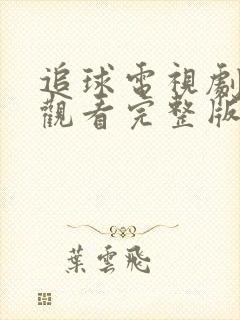 追球電視劇
觀看完整版
葉雲飛